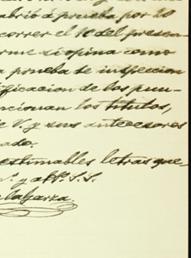 abrió á prueba por 20
correr el 10 del presen-
rme se opina como
a prueba de inspeccion
ificacion de los pun-
ncionan los títulos,
e V. y sus antecesores
ado.
estimables letras que
y aff.º S. S.